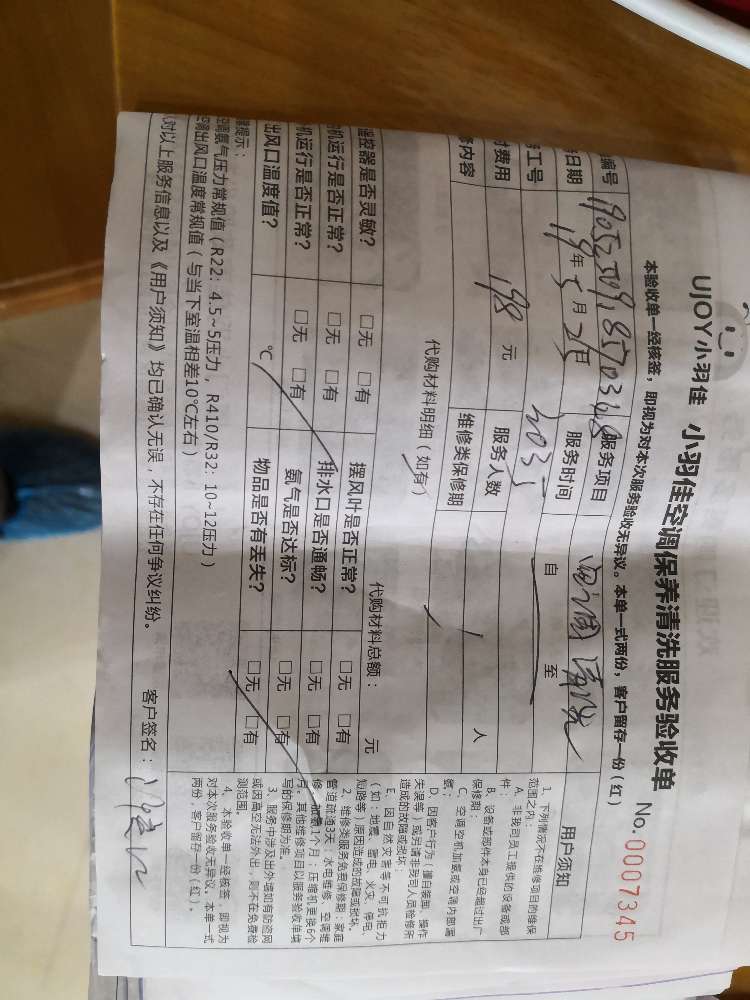 UJOY小羽佳 小羽佳空调保养清洗服务验收单 No.0007345
本验收单一经核签，即视为对本次服务验收无异议。本单一式两份，客户留存一份（红）
编号 服务项目 空调清洗
日期 19年5月25日 服务时间 自 至
工号 2035
费用 198元 服务人数 人
内容 维修类保修期
代购材料明细（如有） 代购材料总额： 元
遥控器是否灵敏？ □无 □有 摆风叶是否正常？ □无 □有
机运行是否正常？ □无 □有 排水口是否通畅？ □无 □有
机运行是否正常？ □无 □有 氨气是否达标？ □无 □有
出风口温度值？ ℃ 物品是否有丢失？ □无 □有
提示：
氨气压力常规值（R22：4.5~5压力，R410/R32：10~12压力）
出风口温度常规值（与当下室温相差10℃左右）
对以上服务信息以及《用户须知》均已确认无误，不存在任何争议纠纷。 客户签名：
用户须知
1、下列情况不在维修项目的维保
范围之内：
A、非我司员工提供的设备或部
件；
B、设备或部件本身已经超过出厂
保修期；
C、空调空机加氨或空调内部漏
氨；
D、因客户行为（擅自装卸、操作
失误等）或另请非我司人员检修所
造成的故障或损坏；
E、因自然灾害等不可抗拒力
（如：地震、雷电、火灾、停电、
短路等）原因造成的故障或损坏。
2、维修类服务免费保修期：家庭
管道疏通3天、水电维修、空调维
修、加氨1个月；压缩机更换6个
月。其他维修项目以服务验收单填
写的保修期为准。
3、服务中涉及出外墙如有防盗网
或因高空无法外出，则不在免费检
测范围。
4、本验收单一经核签，即视为
对本次服务验收无异议。本单一式
两份，客户留存一份（红）。